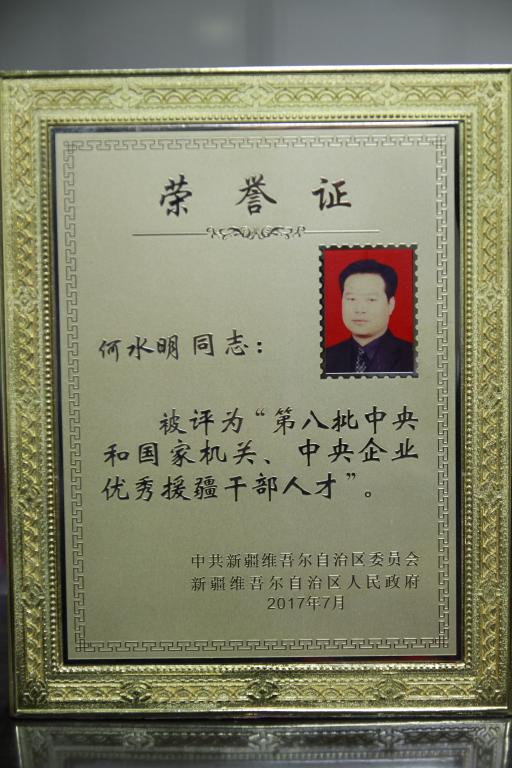 荣誉证
何水明同志：
被评为“第八批中央
和国家机关、中央企业
优秀援疆干部人才”。
中共新疆维吾尔自治区委员会
新疆维吾尔自治区人民政府
2017年7月